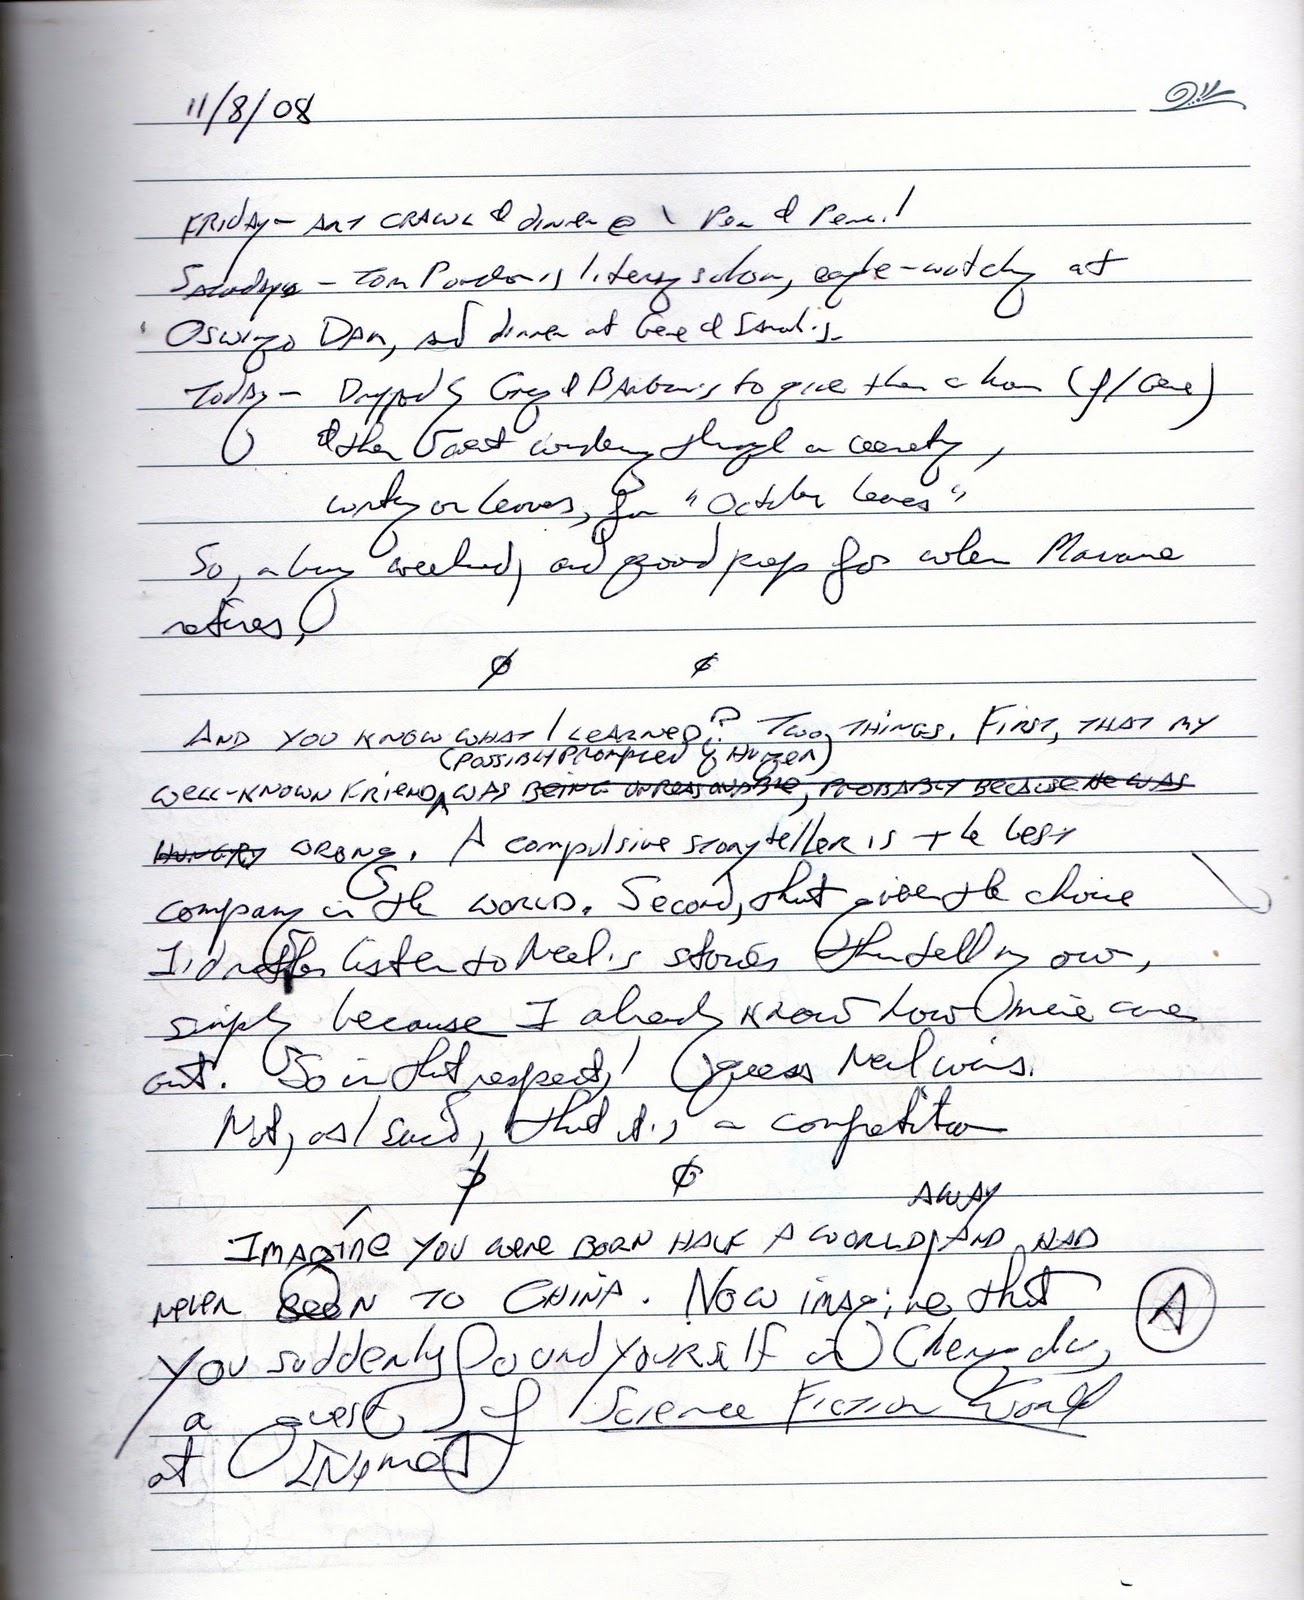 11/8/08
FRIDAY— ART CRAWL & dinner @ Pen & Pencil
Saturday — Tom Purdom's literary salon, eagle-watching at
Oswego DAM, and dinner at Gene &
Today— Dropped by Greg & Barbara's to give them a (f/Gene)
& then went wandering through a cemetery,
writing on leaves, for "October Leaves"
So, a busy weekend, and good prep for when Marianne
retires.
AND YOU KNOW WHAT I LEARNED? TWO THINGS. FIRST, THAT MY
(POSSIBLY PROMPTED by HUNGER)
WELL-KNOWN FRIEND WAS BEING UNREASONABLE, PROBABLY BECAUSE HE WAS
HUNGRY WRONG. A compulsive storyteller is the best
company in the WORLD. Second, that given the choice
I'd rather listen to Neal's stories than tell my own,
simply because I already know how mine come
out. So in that respect, I guess Neal wins.
Not, as I said, that it is a competition
AWAY
IMAGINE YOU WERE BORN HALF A WORLD, AND HAD
NEVER BEEN TO CHINA. NOW imagine that
YOU suddenly found YOURSELF in Chengdu,
a guest of Science Fiction World
A
at